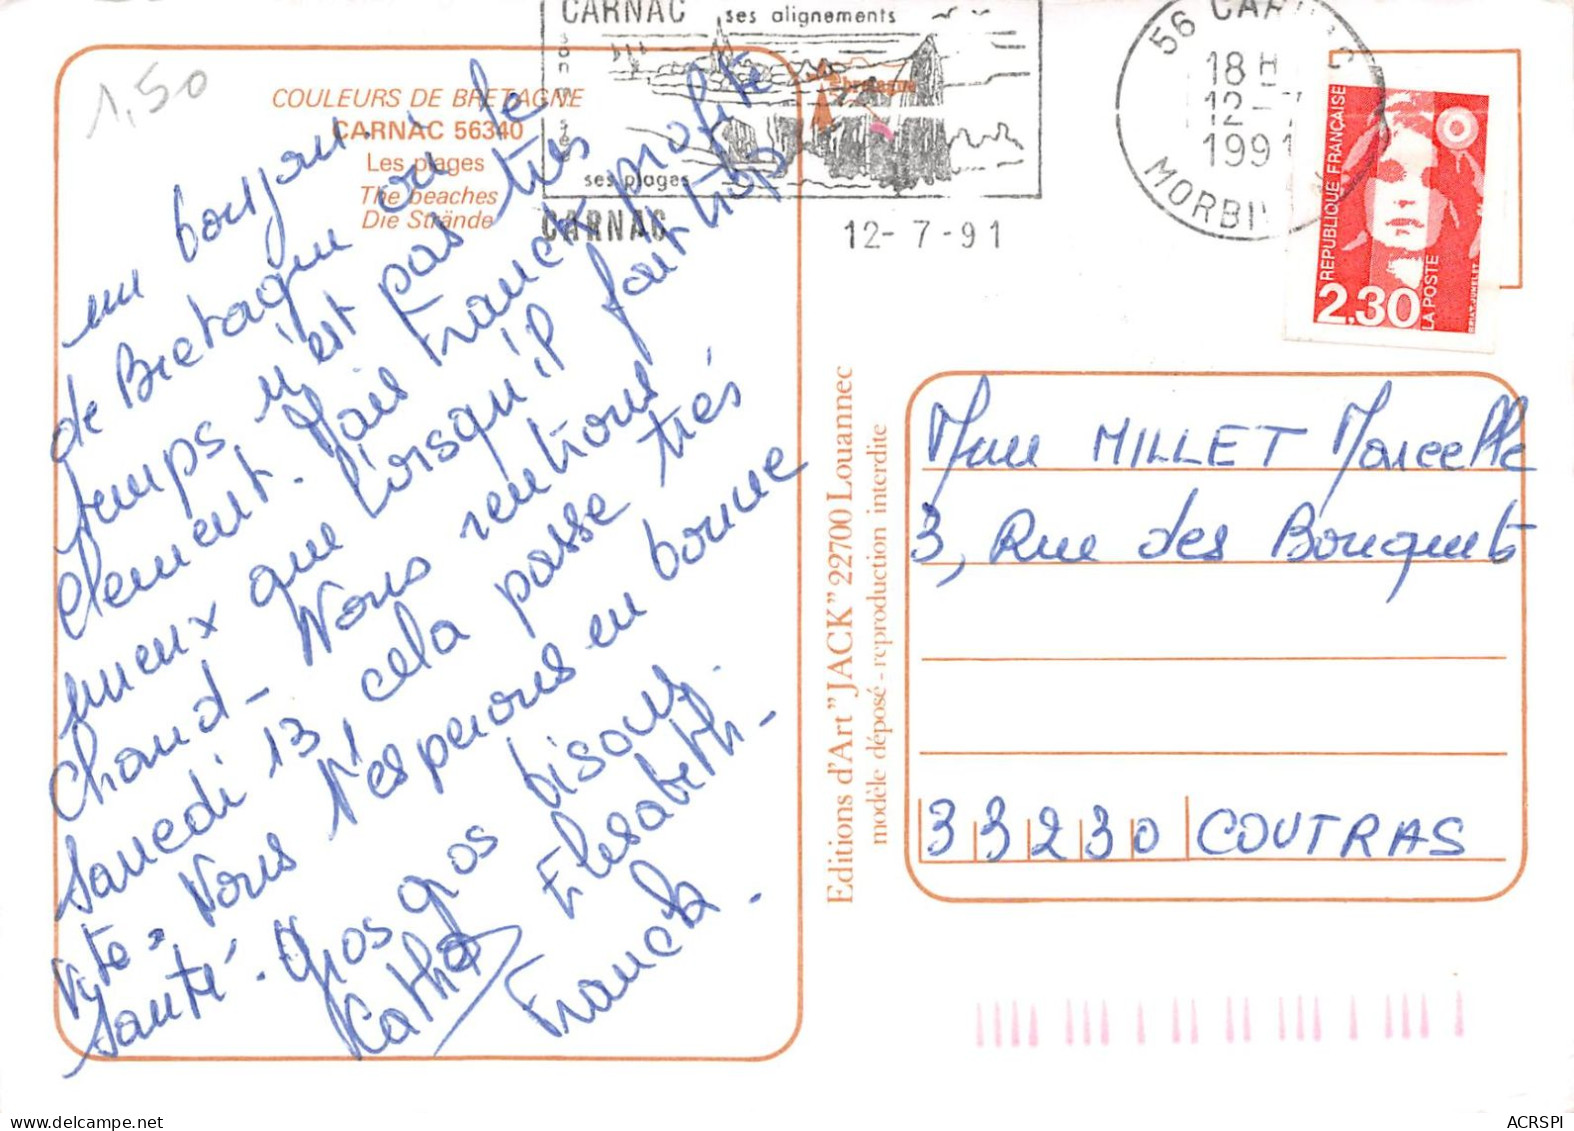 1,50
COULEURS DE BRETAGNE
CARNAC 56340
Les plages
The beaches
Die Strände
un bonjour
de Bretagne où le
temps n'est pas très
clement. Mais Franck profite
mieux que lorsqu'il fait trop
chaud - Nous rentrons
Samedi 13 cela passe très
vite. Nous t'esperons en bonne
Santé. Gros gros bisous.
Cathy Elisabeth -
Franck.
CARNAC
ses alignements
son musée
ses plages
bretagne
CARNAC
12-7-91
56 CARNAC
18 H
12-7
1991
MORBI
REPUBLIQUE FRANÇAISE
2,30
LA POSTE
Editions d'Art "JACK" 22700 Louannec
modèle déposé - reproduction interdite
Mme MILLET Marcelle
3, Rue des Bouquets
33230 COUTRAS
ACRSPI